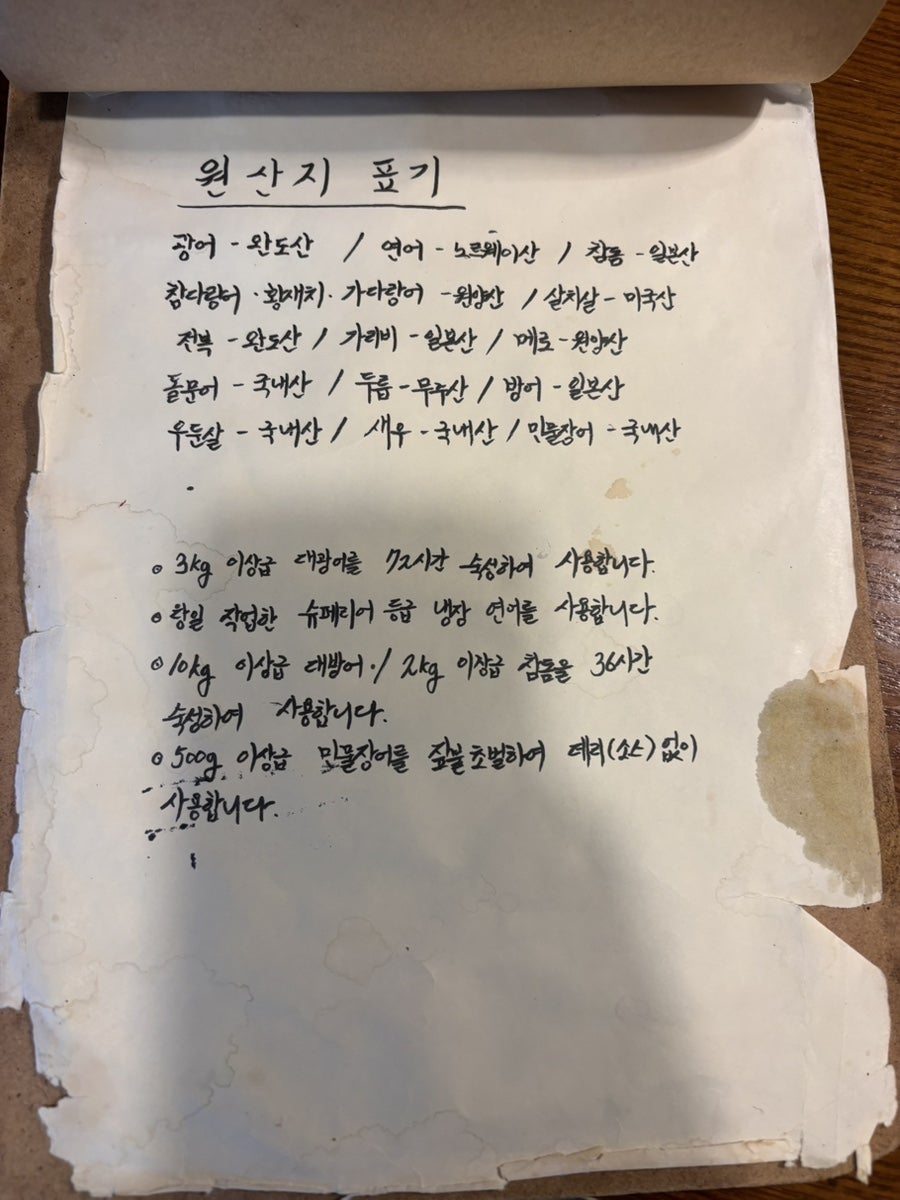 원산지 표기
광어 - 완도산 / 연어 - 노르웨이산 / 참돔 - 일본산
참다랑어 · 황재치 · 가다랑어 - 원양산 / 살치살 - 미국산
전복 - 완도산 / 가리비 - 일본산 / 메로 - 원양산
돌문어 - 국내산 / 두릅 - 무주산 / 방어 - 일본산
우둔살 - 국내산 / 새우 - 국내산 / 민물장어 - 국내산
o 3kg 이상급 대광어를 72시간 숙성하여 사용합니다.
o 왕일 작업한 슈페리어 등급 냉장 연어를 사용합니다.
o 10kg 이상급 대방어 · / 2kg 이상급 참돔을 36시간
숙성하여 사용합니다.
o 500g 이상급 민물장어를 짚불초벌하여 데리(소스) 없이
사용합니다.